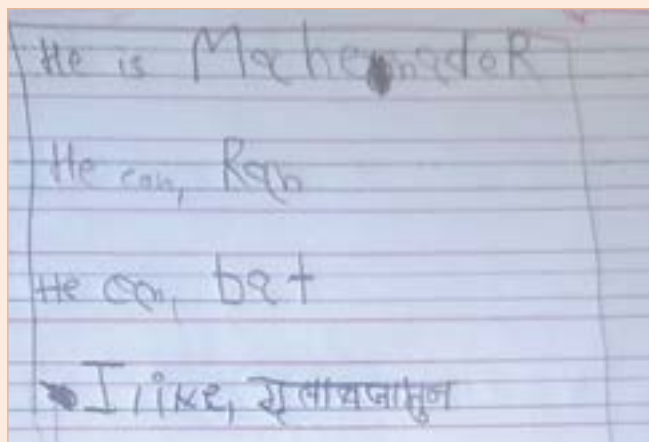 He is Mahendra doR
He can, Ran
He can, bat
I like, गुलाबजामुन